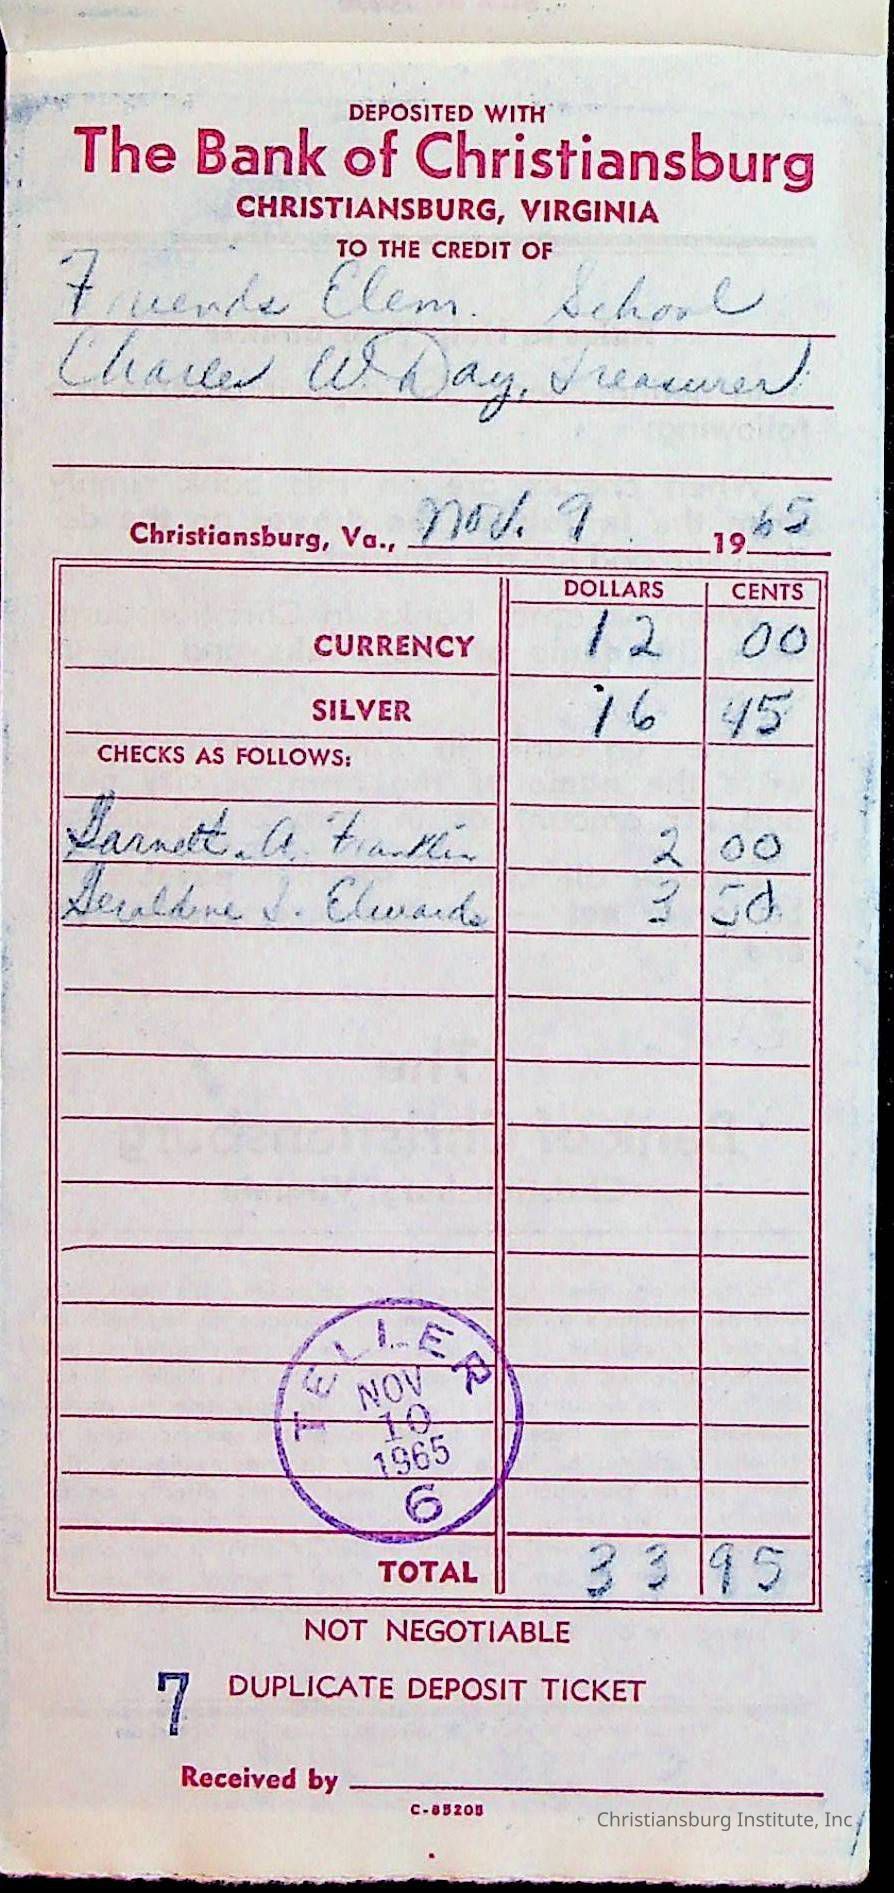 DEPOSITED WITH
The Bank of Christiansburg
CHRISTIANSBURG, VIRGINIA
TO THE CREDIT OF
Friends Elem. School
Charles W. Day, Treasurer
Christiansburg, Va., Nov. 9 1965
DOLLARS CENTS
CURRENCY 12 00
SILVER 16 45
CHECKS AS FOLLOWS:
Garnett A. Franklin 2 00
Geraldine S. Edwards 3 50
TELLER
NOV
10
1965
6
TOTAL 33 95
NOT NEGOTIABLE
7 DUPLICATE DEPOSIT TICKET
Received by
C-85205
Christiansburg Institute, Inc